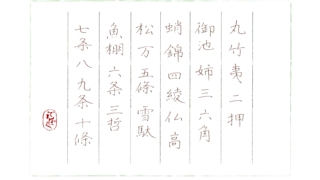 丸竹夷二押
御池姉三六角
蛸錦四綾仏高
松万五條雪駄
魚棚六条三哲
七条八九条十條